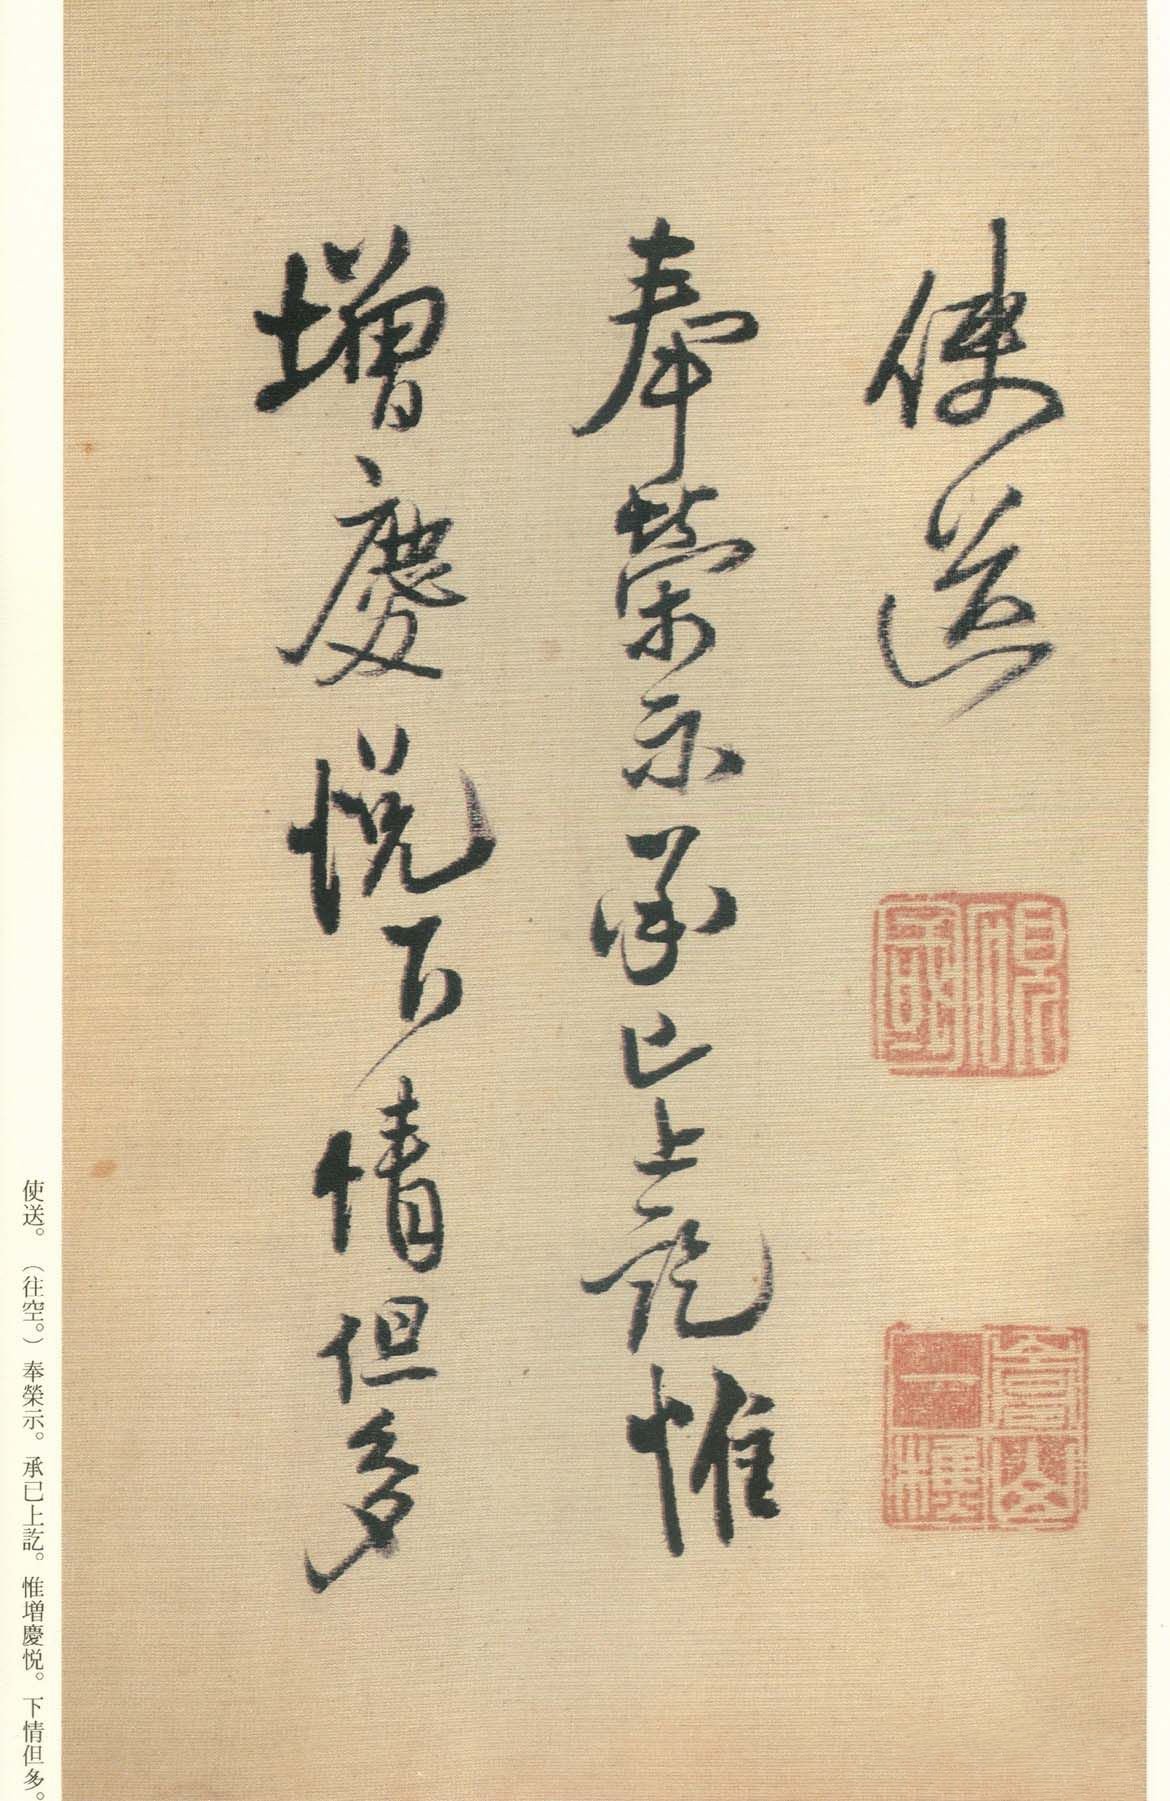 使送
奉榮示承已上訖惟
增慶悅下情但多
使送。（往空。）奉榮示。承已上訖。惟增慶悅。下情但多。